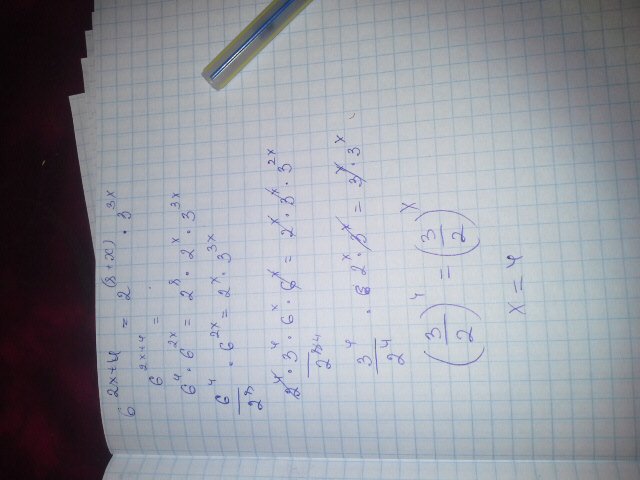 6^{2x+4} = 2^{(8+x)} · 3^{3x}
6^{2x+4} =
6^4 · 6^{2x} = 2^8 · 2^x · 3^{3x}
6^4/2^8 · 6^{2x} = 2^x · 3^{3x}
2^4 · 3^4 · 6^x · 6^x / 2^{84} = 2^x · 3^x · 3^{2x}
3^4/2^4 · 6 2^x · 3^x = 3^x · 3^x
(3/2)^4 = (3/2)^x
x = 4